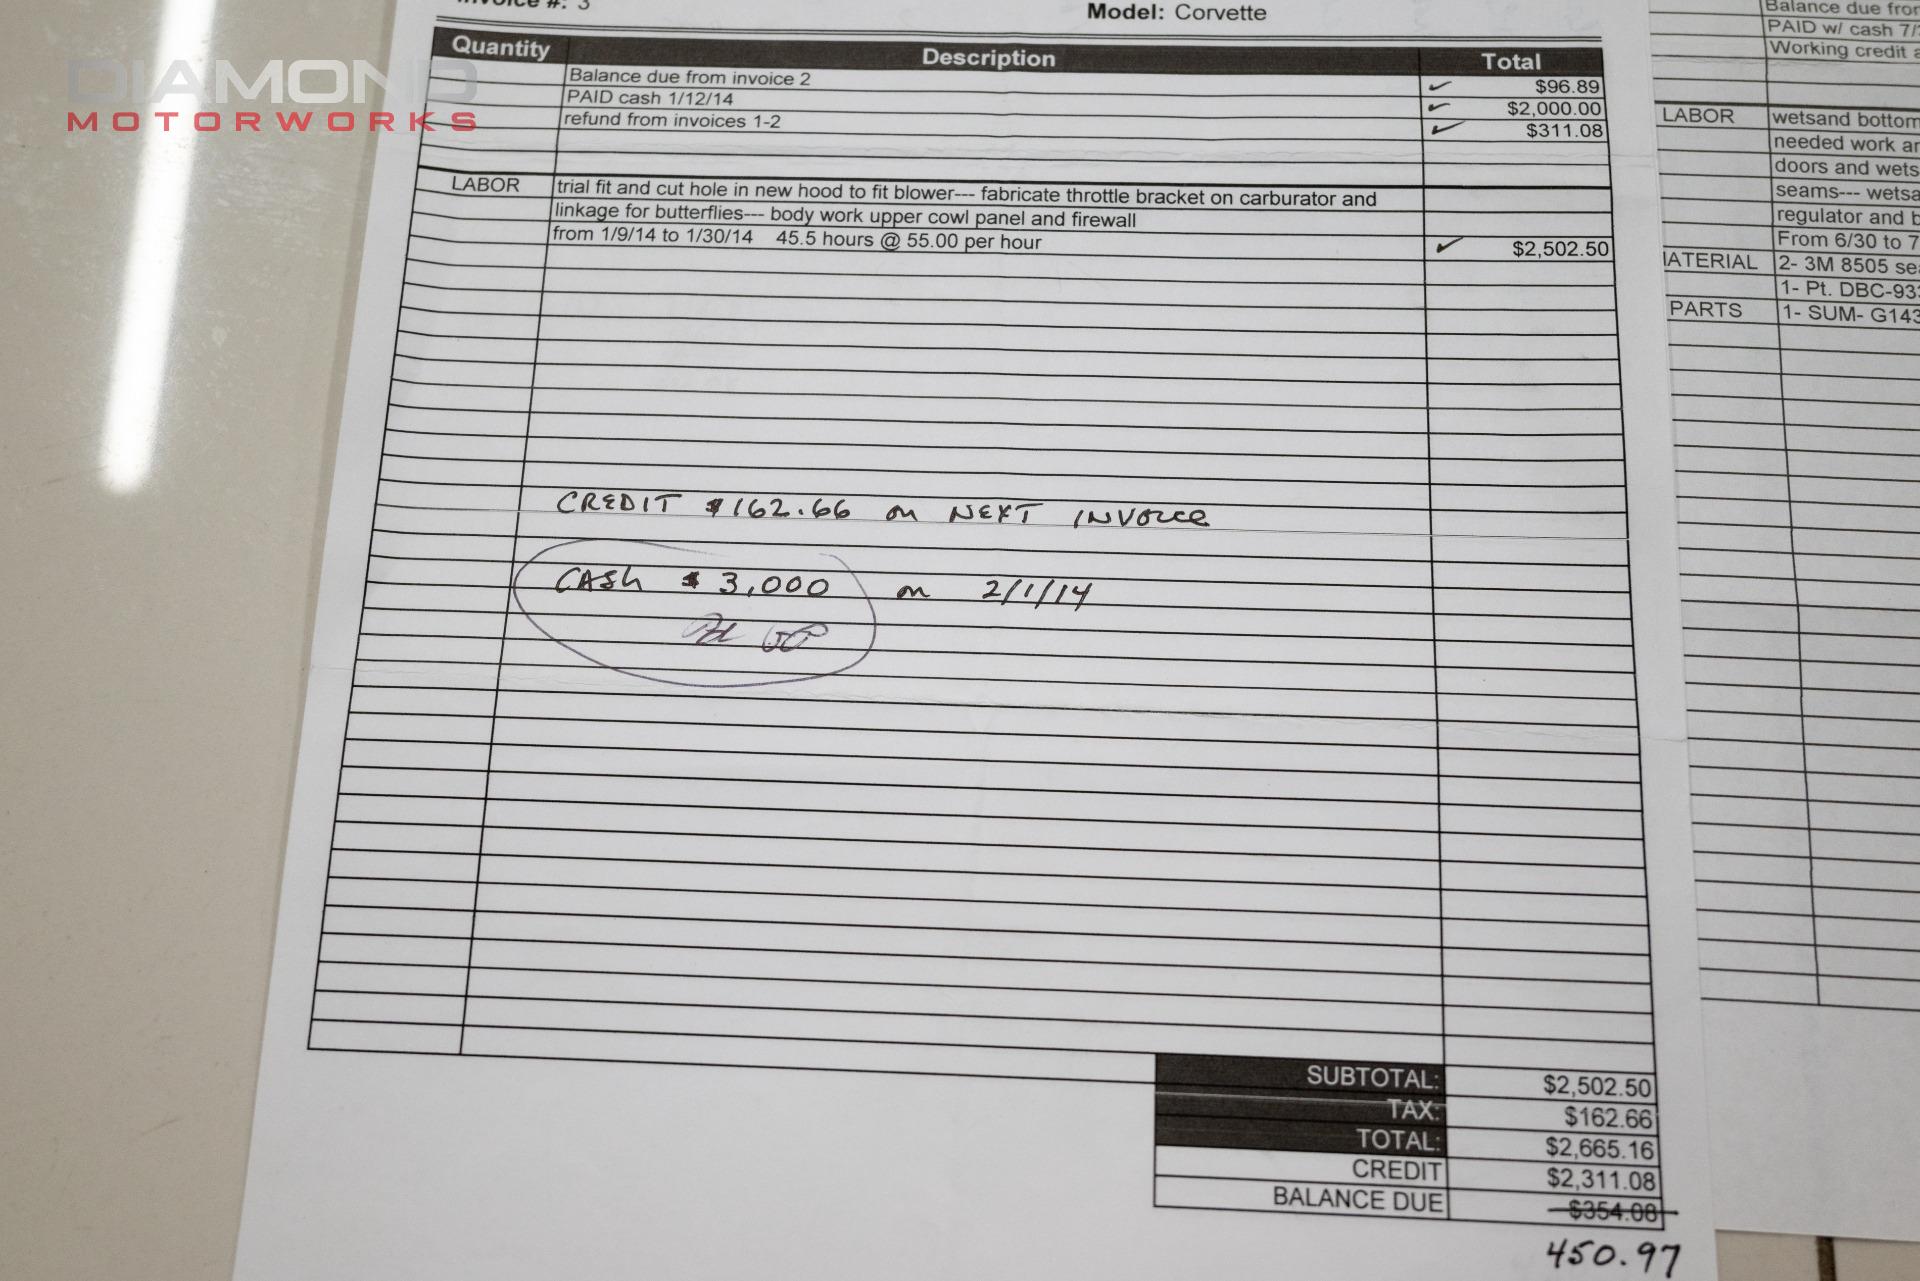 Invoice #: 3
Model: Corvette
DIAMOND
MOTORWORKS
Quantity Description Total
Balance due from invoice 2 $96.89
PAID cash 1/12/14 $2,000.00
refund from invoices 1-2 $311.08
LABOR trial fit and cut hole in new hood to fit blower--- fabricate throttle bracket on carburator and
linkage for butterflies--- body work upper cowl panel and firewall
from 1/9/14 to 1/30/14 45.5 hours @ 55.00 per hour $2,502.50
CREDIT $162.66 on NEXT INVOICE
CASH $3,000 on 2/1/14
Pd
SUBTOTAL: $2,502.50
TAX: $162.66
TOTAL: $2,665.16
CREDIT $2,311.08
BALANCE DUE $354.08
450.97
Balance due from
PAID w/ cash 7/
Working credit
LABOR wetsand bottom
needed work
doors and wets
seams--- wetsa
regulator and
From 6/30 to 7
MATERIAL 2- 3M 8505
1- Pt. DBC-93
PARTS 1- SUM- G143